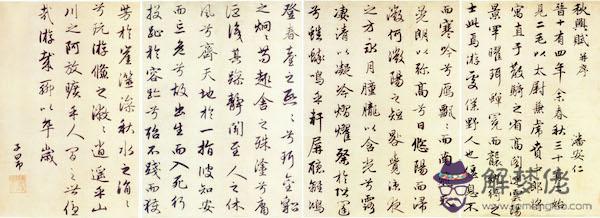 秋興賦 并序 潘安仁
晉十有四年余春秋三十有二始
見二毛以太尉掾兼虎賁中郎將
寓直于散騎之省高閣連雲陽
景罕曜珥蟬冕而襲紈綺之
士此焉游處僕野人也偃息不
而寒吟兮鴈飄〻而南
晃朗以弥高兮日悠陽而浸
微何微陽之短晷覺涼夜
之方永月朣朧以含光兮露
淒清以凝冷熠燿粲於階闥
兮蟋蟀鳴乎軒屏聽離鴻
登春臺之熙〻兮珥金貂
之炯〻苟趣舍之殊塗兮庸
詎識其躁靜聞至人之休
風兮齊天地於一指彼知安
而忘危兮故出生而入死行
投趾於容跡兮殆不踐而獲
芳於崖澨澡秋水之涓〻
兮玩游儵之澈〻逍遙乎山
川之阿放曠乎人間之世優
哉游哉聊以卒歲
子昂
解梦佬